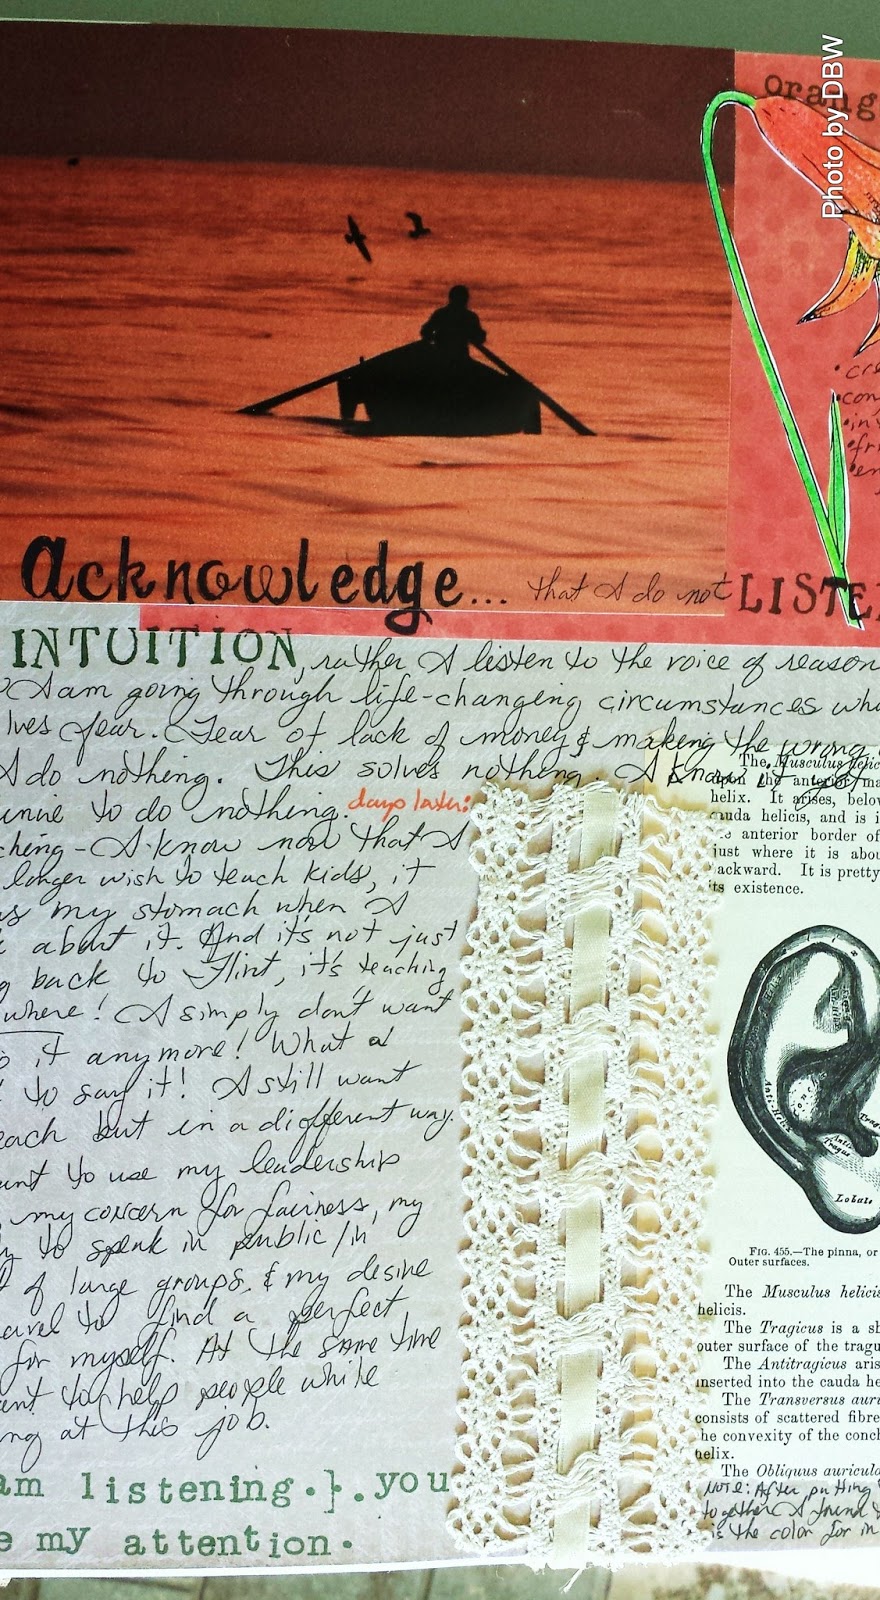 Photo by DBW
orang
• cre
• con
• in
• fr
• en
Acknowledge... that I do not LISTE
INTUITION, rather I listen to the voice of reason
I am going through life-changing circumstances wh
lves fear. Fear of lack of money & making the wrong
I do nothing. This solves nothing. I know
inue to do nothing. days later:
ching - I know now that I
longer wish to teach kids, it
s my stomach when I
about it. And it's not just
g back to Flint, it's teaching
where! I simply don't want
it anymore! What a
to say it! I still want
each but in a different way.
ant to use my leadership
, my concern for fairness, my
y to speak in public/in
of large groups. & my desire
avel to find a perfect
for myself. At the same time
ant to help people while
ng at this job.
am listening.}.you
e my attention.
The Musculus helic
upon the anterior ma
helix. It arises, below
cauda helicis, and is i
anterior border of
just where it is abou
ackward. It is pretty
its existence.
Anti-Helix
Concha
Trag
Anti Tragus
Lobule
FIG. 455.—The pinna, or
Outer surfaces.
The Musculus helicis
helicis.
The Tragicus is a sh
outer surface of the tragu
The Antitragicus aris
inserted into the cauda he
The Transversus auri
consists of scattered fibre
he convexity of the conch
helix.
The Obliquus auricula
NOTE: After putting
together I found
is the color for in